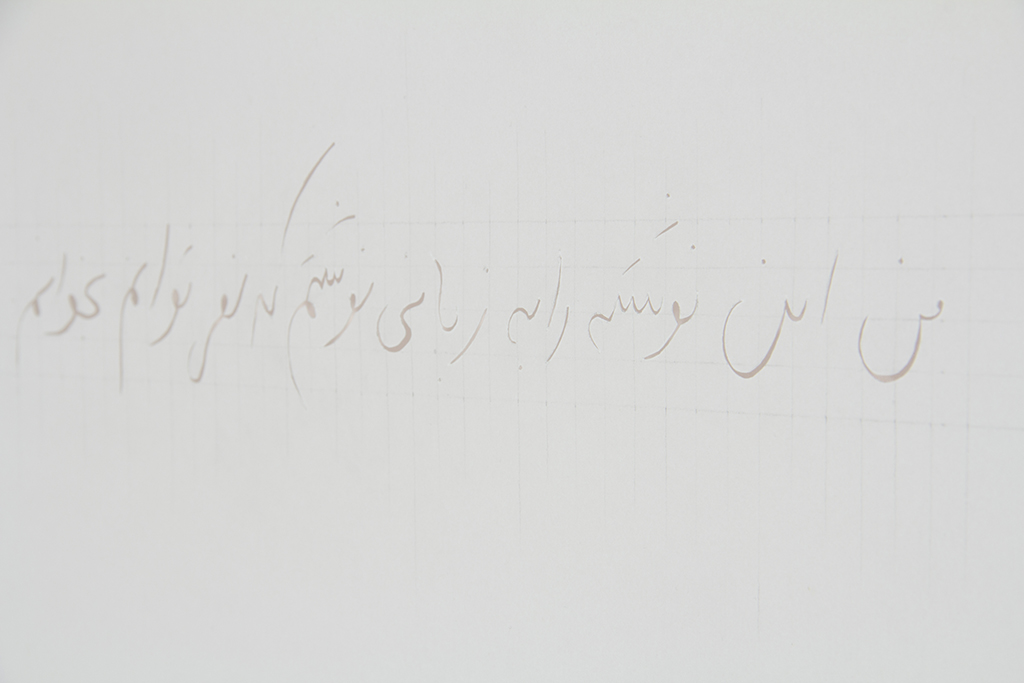 من این نوشته را به زبانی نوشتم که نمی توانم بخوانم